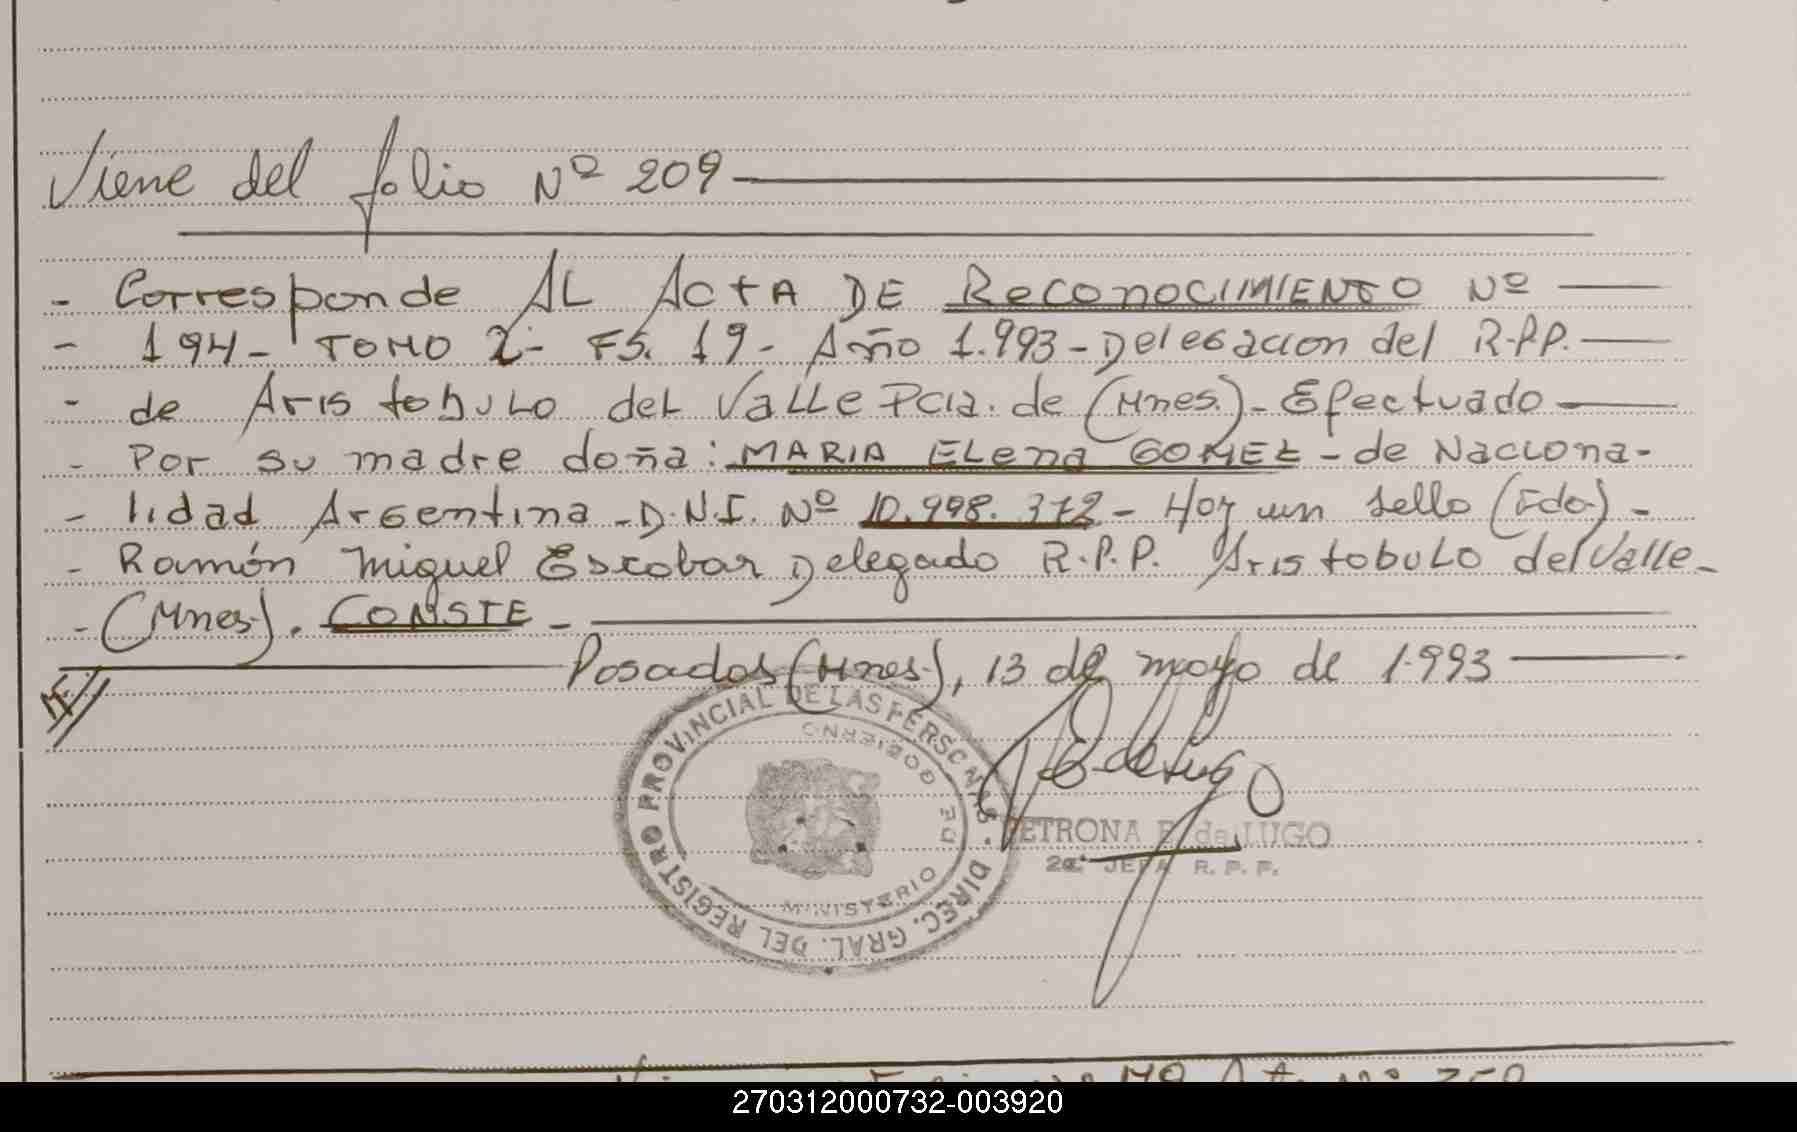 Viene del folio Nº 209
- Corresponde AL ActA DE ReconocIMIENTO Nº
- 194- TOMO 2- FS. 19- Año 1.993- Delegacion del R.P.P.
- de Aristobulo del Valle Pcia. de (Mnes.)- Efectuado
- Por su madre doña: MARIA ELena GOMEZ - de Naciona-
- lidad Argentina - D.N.I. Nº 10.998.372 - Hay un sello (Fdo) -
- Ramón Miguel Escobar Delegado R.P.P. Aristobulo del Valle-
- (Mnes). CONSTE -
Posadas (Mnes.), 13 de mayo de 1.993
DIREC. GRAL. DEL REGISTRO PROVINCIAL DE LAS PERSONAS
MINISTERIO DE GOBIERNO
PETRONA E. de LUGO
2da. JEFA R. P. P.
270312000732-003920